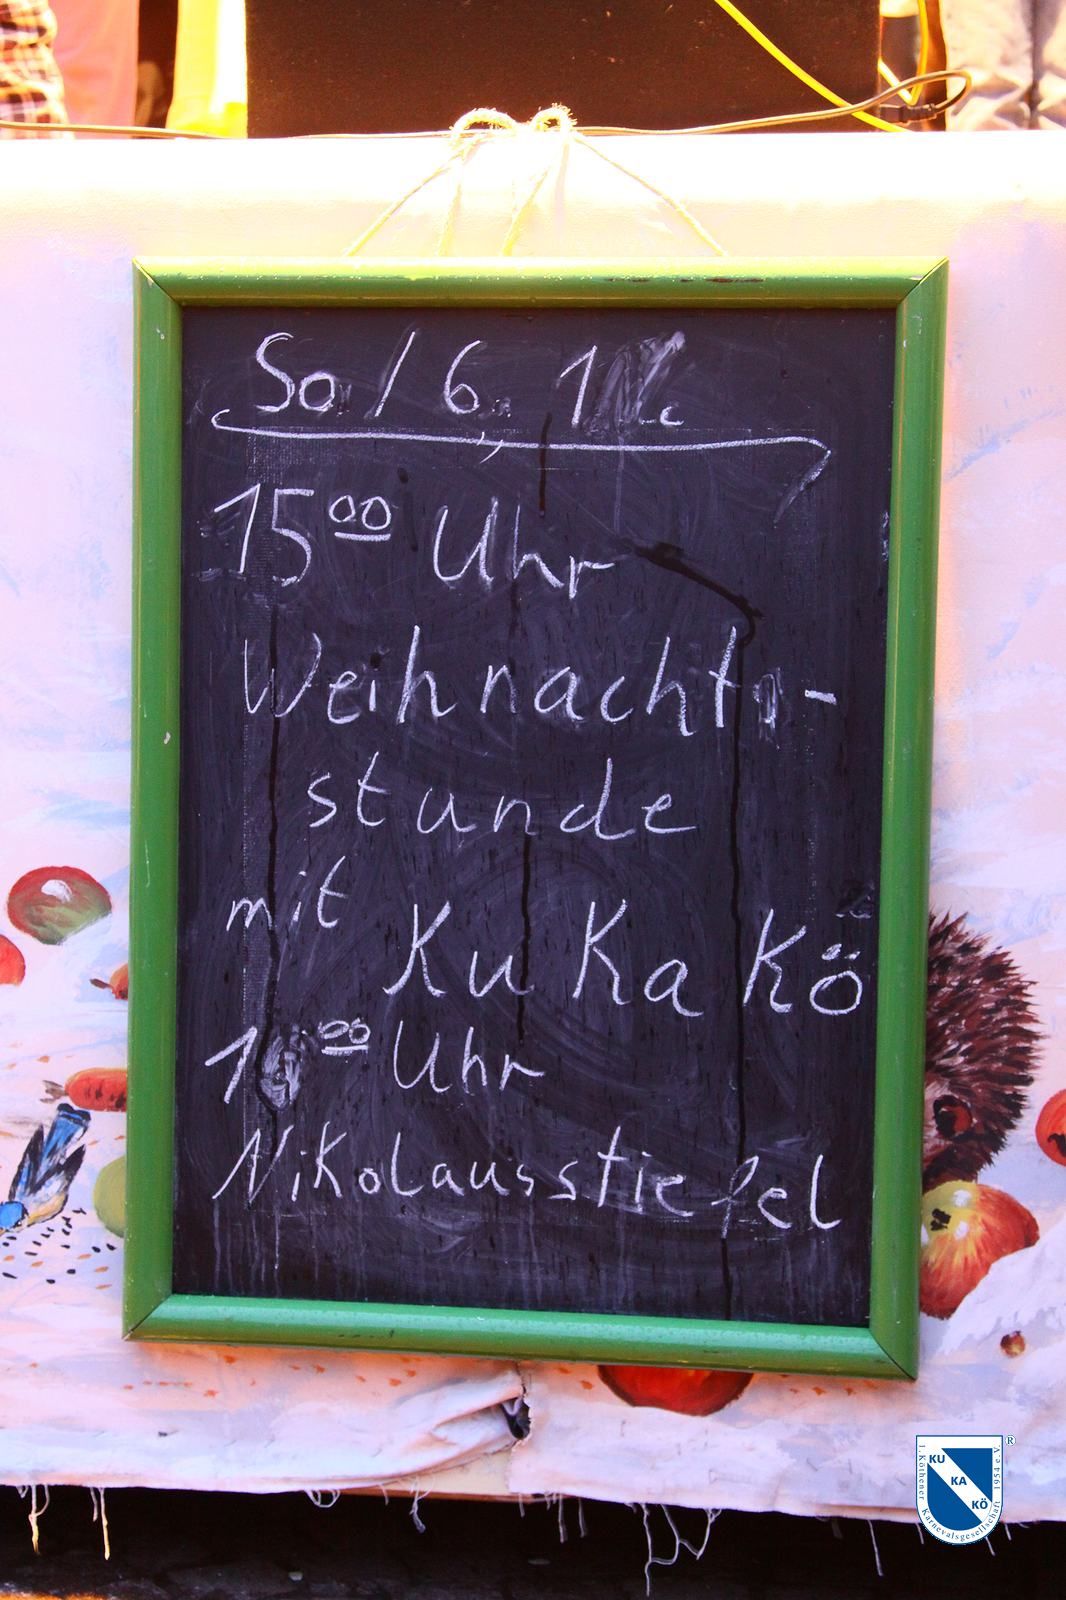 So. / 6. 1
15⁰⁰ Uhr
Weihnachts-
stunde
mit
Ku Ka Kö
Uhr
Nikolausstiefel
KU
KA
KÖ
1. Köthener Karnevalsgesellschaft 1954 e.V.
®